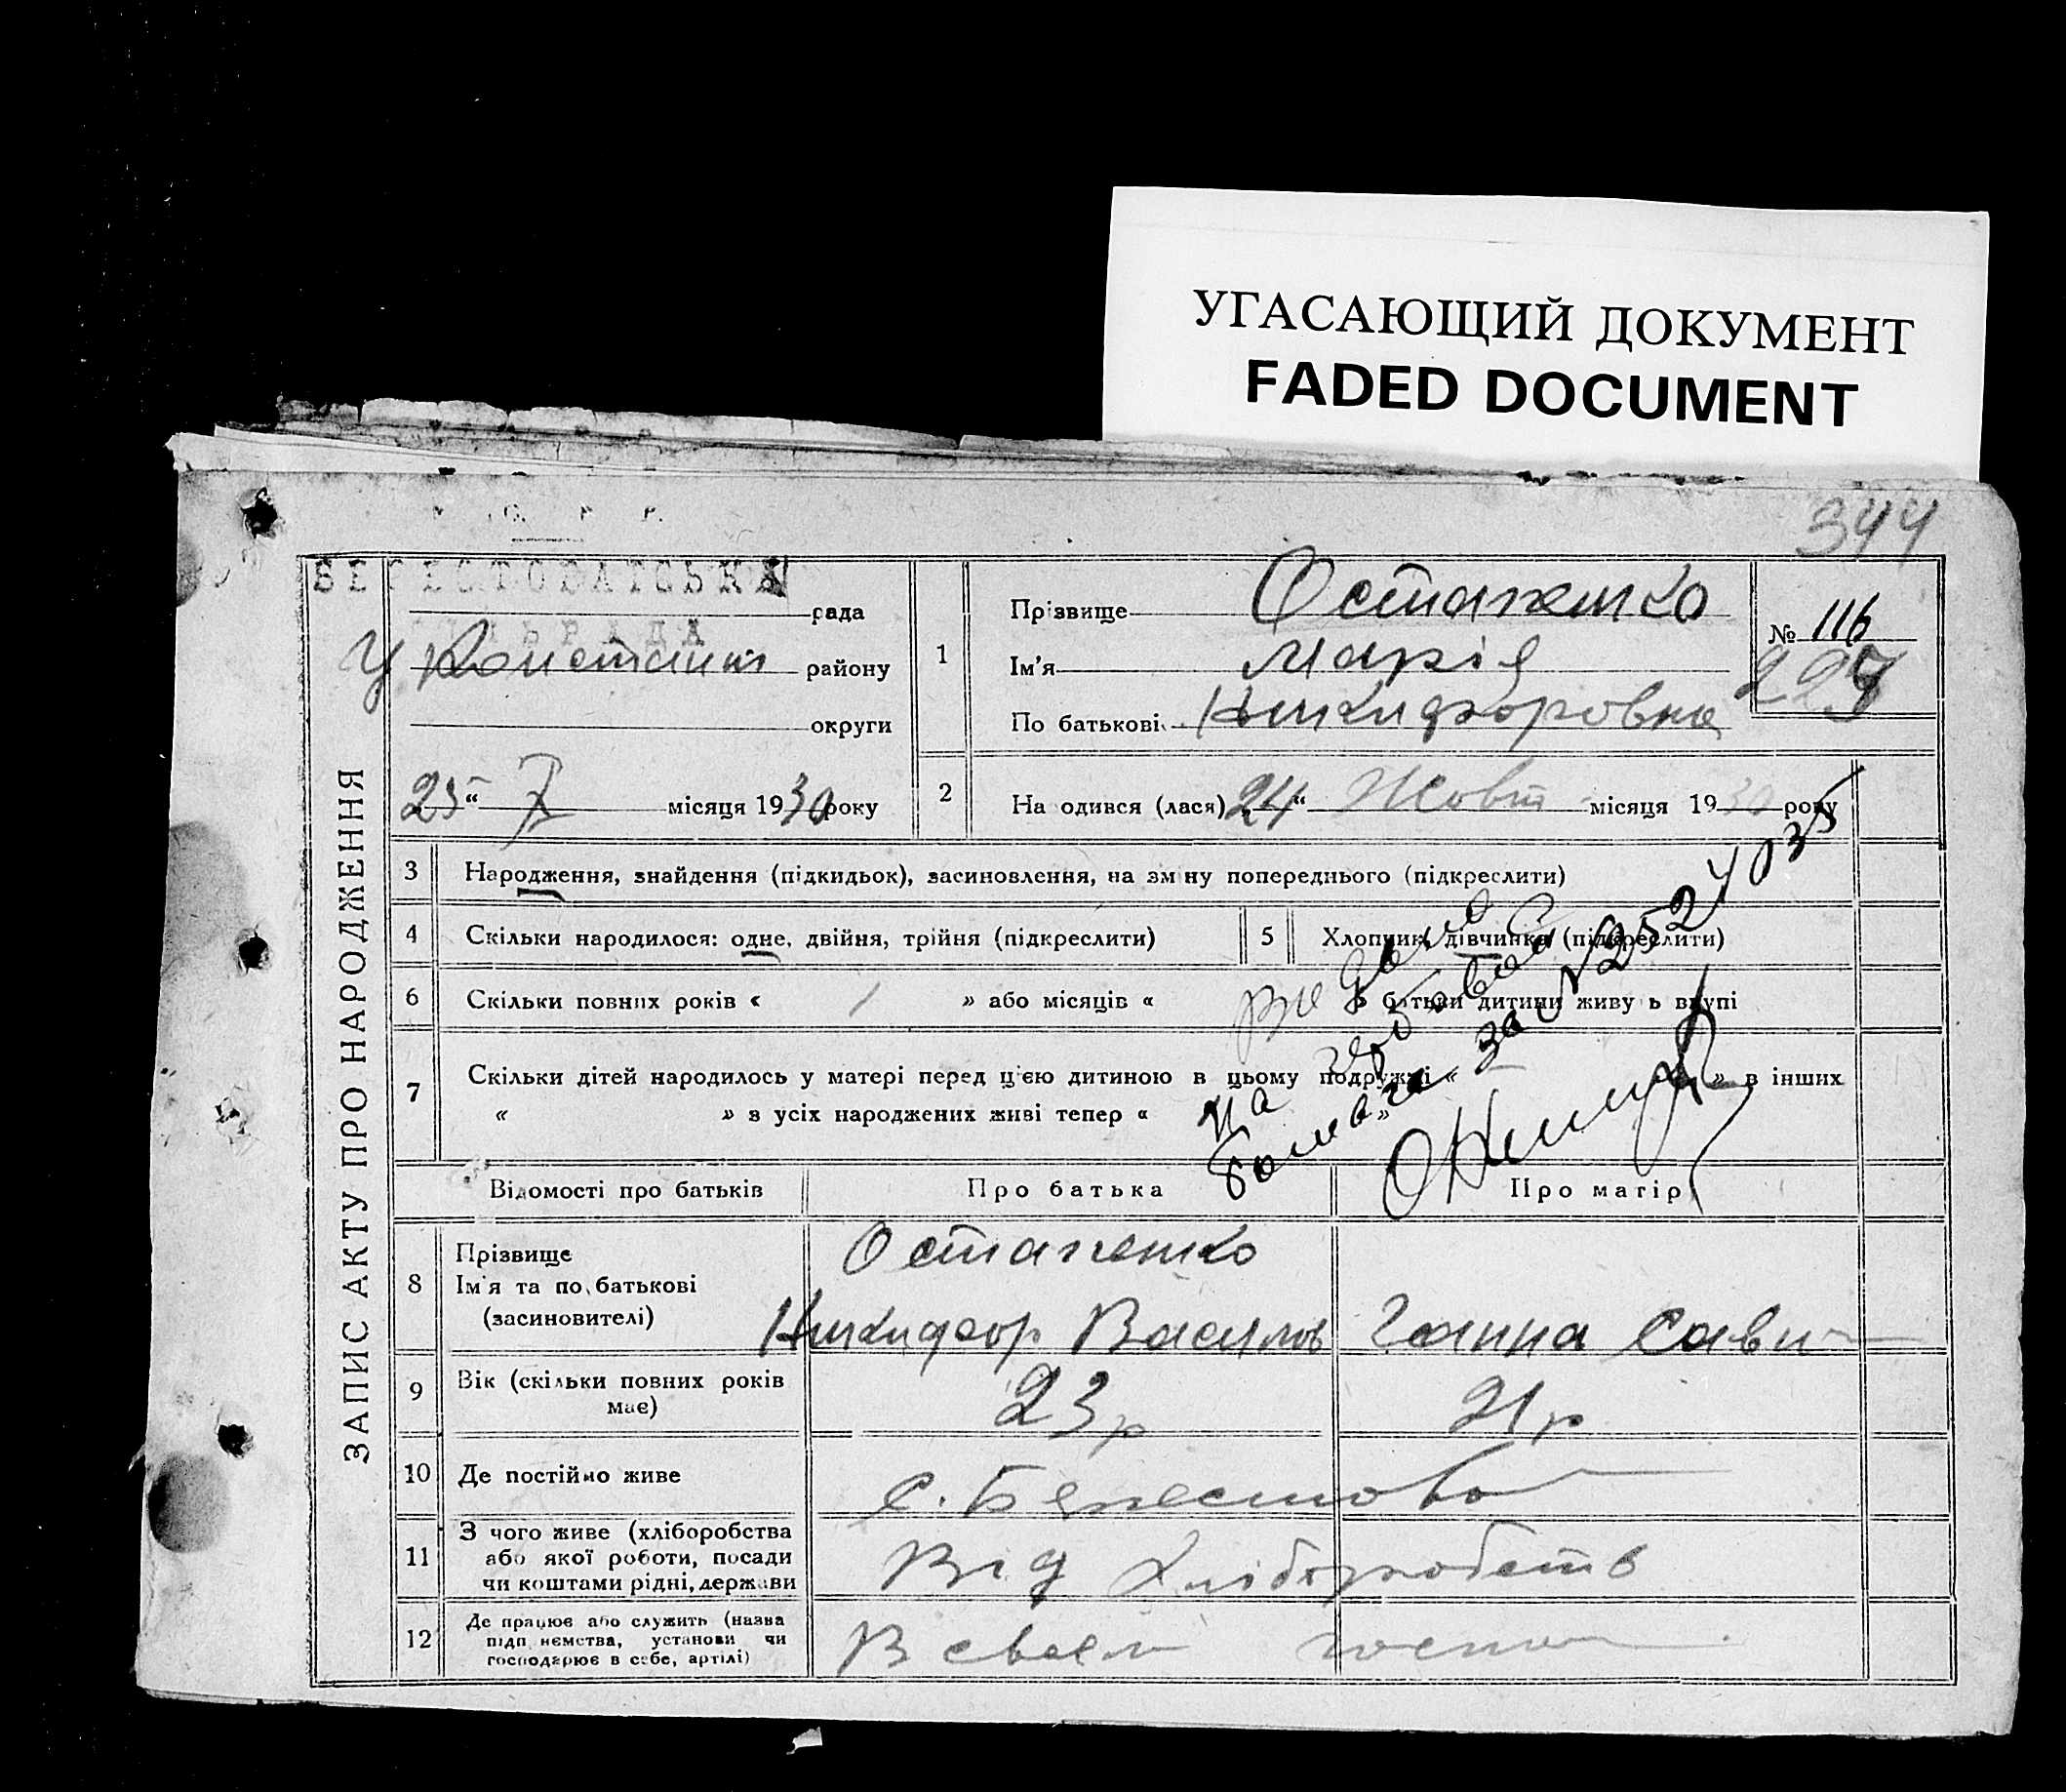 УГАСАЮЩИЙ ДОКУМЕНТ
FADED DOCUMENT
344
БЕРЕСТОВАТСЬКА
рада
СІЛЬРАДА
У Констант району
округи
25 " X місяця 1930 року
1
Прізвище Остапенко
Ім'я Марія
По батькові Никифоровна
№ 116
227
2
На одився (лася) 24 " Жовт місяця 1930 року
ЗАПИС АКТУ ПРО НАРОДЖЕННЯ
3 Народження, знайдення (підкидьок), засиновлення, на зміну попереднього (підкреслити)
4 Скільки народилося: одне, двійня, трійня (підкреслити)
5 Хлопчик, дівчинка (підкреслити)
6 Скільки повних років « / » або місяців « » батьки дитини живу ь вкупі
7 Скільки дітей народилось у матері перед цією дитиною в цьому подружжі « » в інших
« » в усіх народжених живі тепер « »
за № 952
Відомості про батьків
Про батька
Про матір
8 Прізвище
Ім'я та по батькові
(засиновителі)
Остапенко
Никифор Василов
Ганна Сави
9 Вік (скільки повних років
має)
23 р
21 р
10 Де постійно живе
с. Берестова
11 З чого живе (хліборобства
або якої роботи, посади
чи коштами рідні, держави
Від хліборобств
12 Де працює або служить (назва
підп иємства, установи чи
господарює в себе, артілі)
В своєм госп